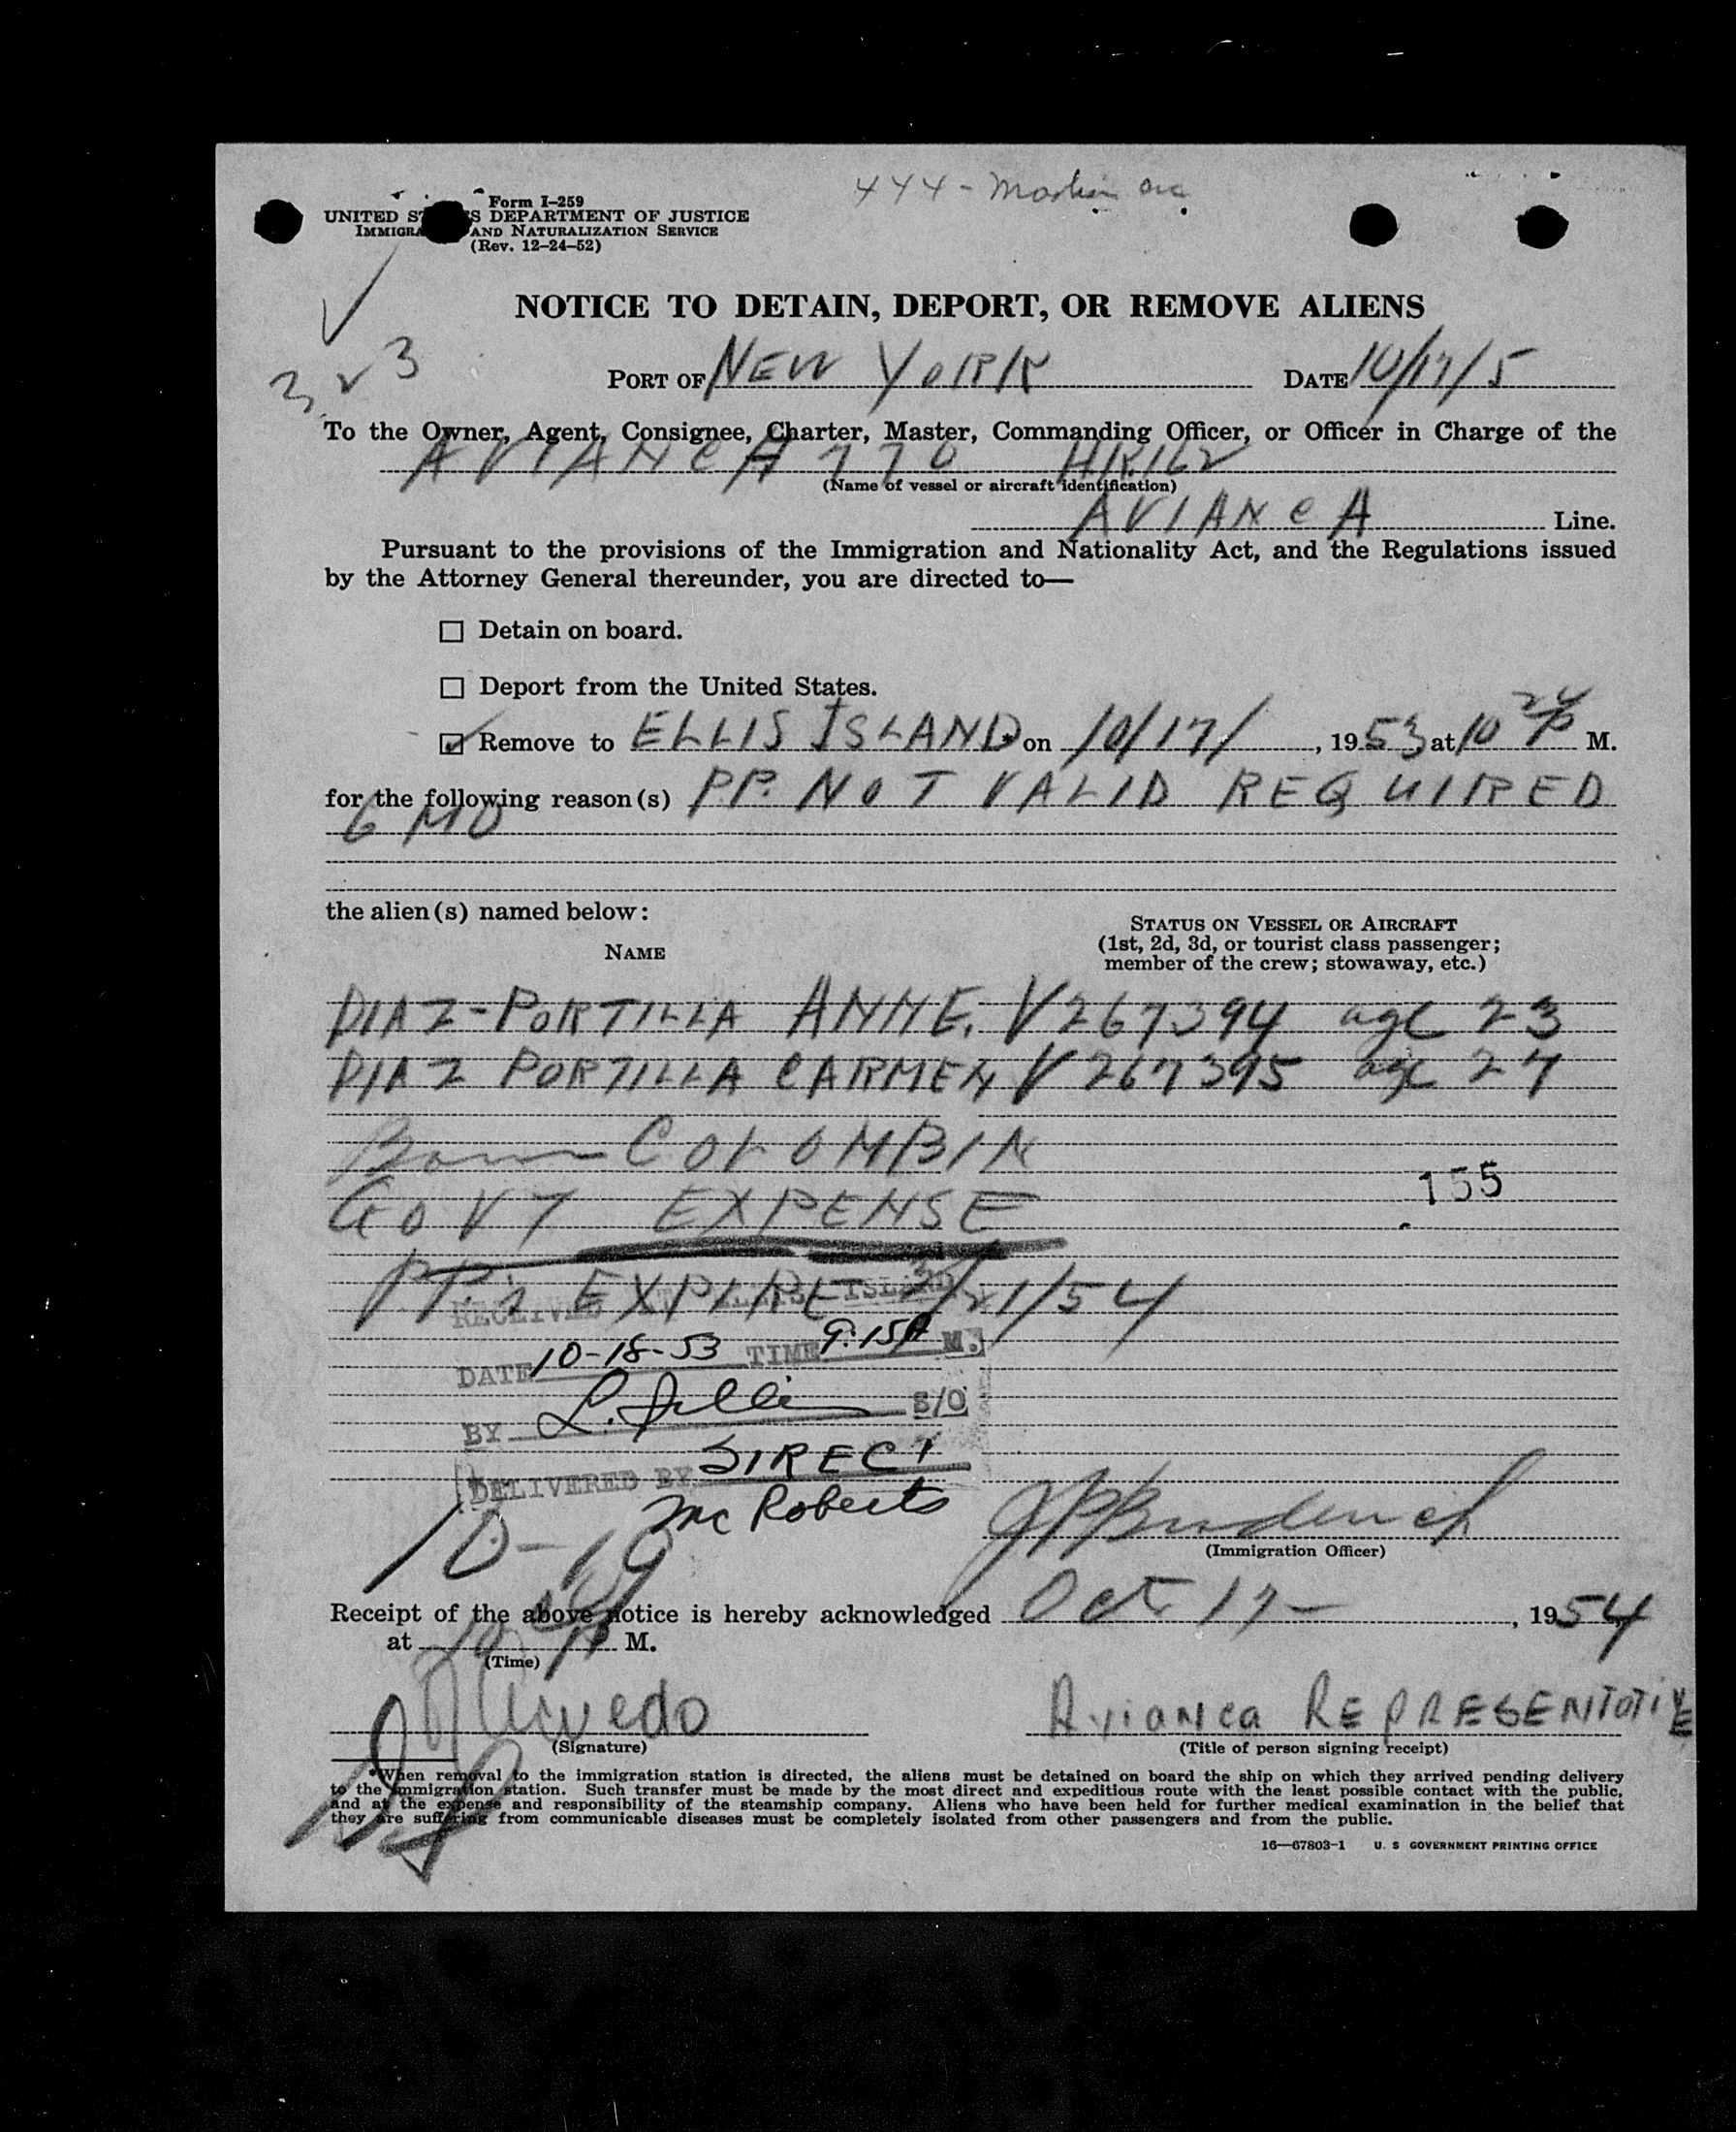 444 -
Form I-259
UNITED S S DEPARTMENT OF JUSTICE
IMMIGRA AND NATURALIZATION SERVICE
(Rev. 12-24-52)
NOTICE TO DETAIN, DEPORT, OR REMOVE ALIENS
PORT OF NEW YORK DATE 10/17/5
To the Owner, Agent, Consignee, Charter, Master, Commanding Officer, or Officer in Charge of the
AVIANCA 770 HK162
(Name of vessel or aircraft identification)
AVIANCA Line.
Pursuant to the provisions of the Immigration and Nationality Act, and the Regulations issued
by the Attorney General thereunder, you are directed to—
☐ Detain on board.
☐ Deport from the United States.
☑ Remove to ELLIS ISLAND * on 10/17/, 1953, at 10 P M.
for the following reason(s) P.P. NOT VALID REQUIRED
6 MO
the alien(s) named below:
STATUS ON VESSEL OR AIRCRAFT
NAME (1st, 2d, 3d, or tourist class passenger;
member of the crew; stowaway, etc.)
DIAZ-PORTILLA ANNE. V267394 age 23
DIAZ PORTILLA CARMEN V267395 age 27
Born COLOMBIA
155
GOVT EXPENSE
PP.s EXPIRE 3/21/54
RECEIVED AT ELLIS ISLAND
DATE 10-18-53 TIME 9:15A M.
BY L. S/O
DIRECT
DELIVERED BY
Mc Roberts
10-19
(Immigration Officer)
Receipt of the above notice is hereby acknowledged Oct 17-, 1954
at 10 P M.
(Time)
Avianca REPRESENTOTIVE
(Signature) (Title of person signing receipt)
*When removal to the immigration station is directed, the aliens must be detained on board the ship on which they arrived pending delivery
to the immigration station. Such transfer must be made by the most direct and expeditious route with the least possible contact with the public,
and at the expense and responsibility of the steamship company. Aliens who have been held for further medical examination in the belief that
they are suffering from communicable diseases must be completely isolated from other passengers and from the public.
16—67803-1 U. S GOVERNMENT PRINTING OFFICE